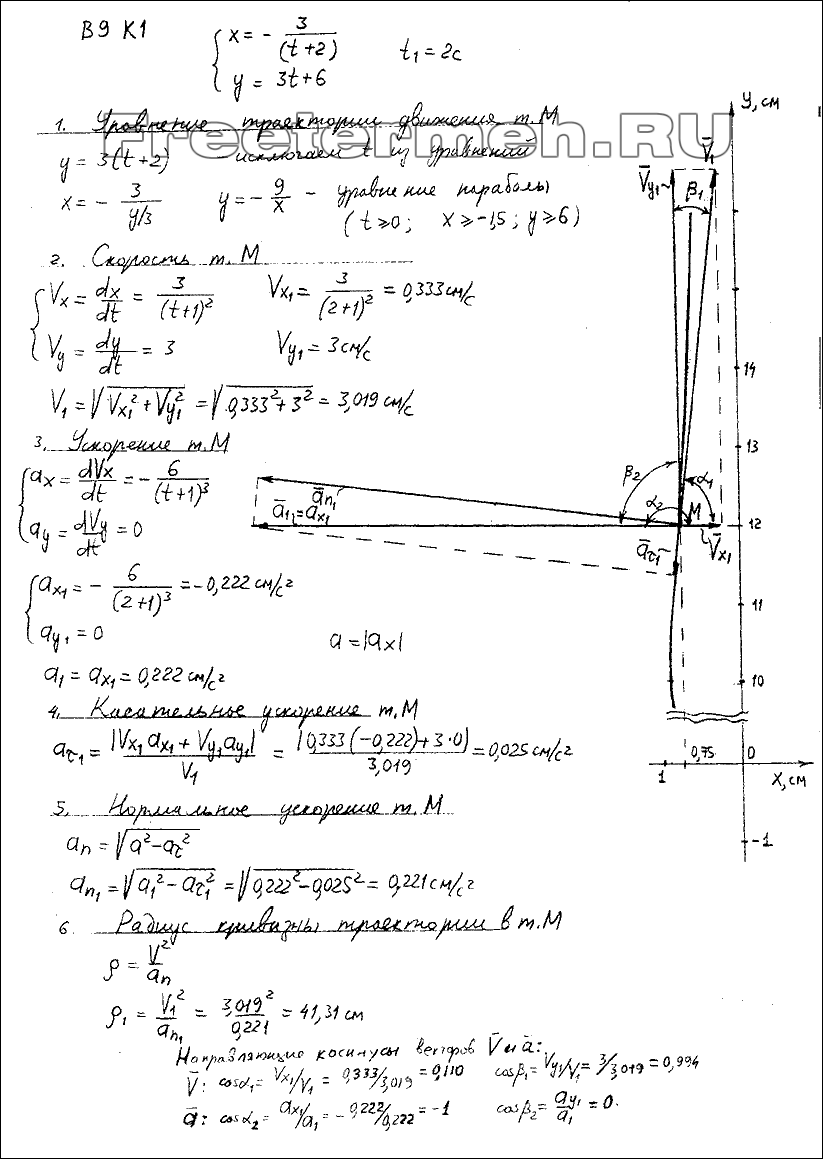 В9 К1
x = - 3/(t+2)
y = 3t+6
t₁ = 2c
Freetermeh.RU
1. Уровнение траектории движения т.М
y = 3(t+2) - исключаем t из уравнений
x = - 3/(y/3)   y = - 9/x - уравнение параболы
(t≥0; x≥-1,5; y≥6)
2. Скорость т.М
Vx = dx/dt = 3/(t+1)²   Vx₁ = 3/(2+1)² = 0,333 см/с
Vy = dy/dt = 3   Vy₁ = 3 см/с
V₁ = √(Vx₁² + Vy₁²) = √(0,333² + 3²) = 3,019 см/с
3. Ускорение т.М
ax = dVx/dt = - 6/(t+1)³
ay = dVy/dt = 0
ax₁ = - 6/(2+1)³ = -0,222 см/с²
ay₁ = 0
a = |ax|
a₁ = ax₁ = 0,222 см/с²
4. Касательное ускорение т.М
aτ₁ = |Vx₁ax₁ + Vy₁ay₁|/V₁ = |0,333(-0,222)+3·0|/3,019 = 0,025 см/с²
5. Нормальное ускорение т.М
an = √(a² - aτ²)
an₁ = √(a₁² - aτ₁²) = √(0,222² - 0,025²) = 0,221 см/с²
6. Радиус кривизны траектории в т.М
ρ = V²/an
ρ₁ = V₁²/an₁ = 3,019²/0,221 = 41,31 см
Направляющие косинусы векторов V̄ и ā:
V̄: cosα₁ = Vx₁/V₁ = 0,333/3,019 = 0,110   cosβ₁ = Vy₁/V₁ = 3/3,019 = 0,994
ā: cosα₂ = ax₁/a₁ = -0,222/0,222 = -1   cosβ₂ = ay₁/a₁ = 0.
y, см
V̄₁
V̄y₁
β₁
14
13
β₂
α₁
ān₁
α₂
M
ā₁ = āx₁
12
āτ₁
V̄x₁
11
10
0,75
0
1
x, см
-1